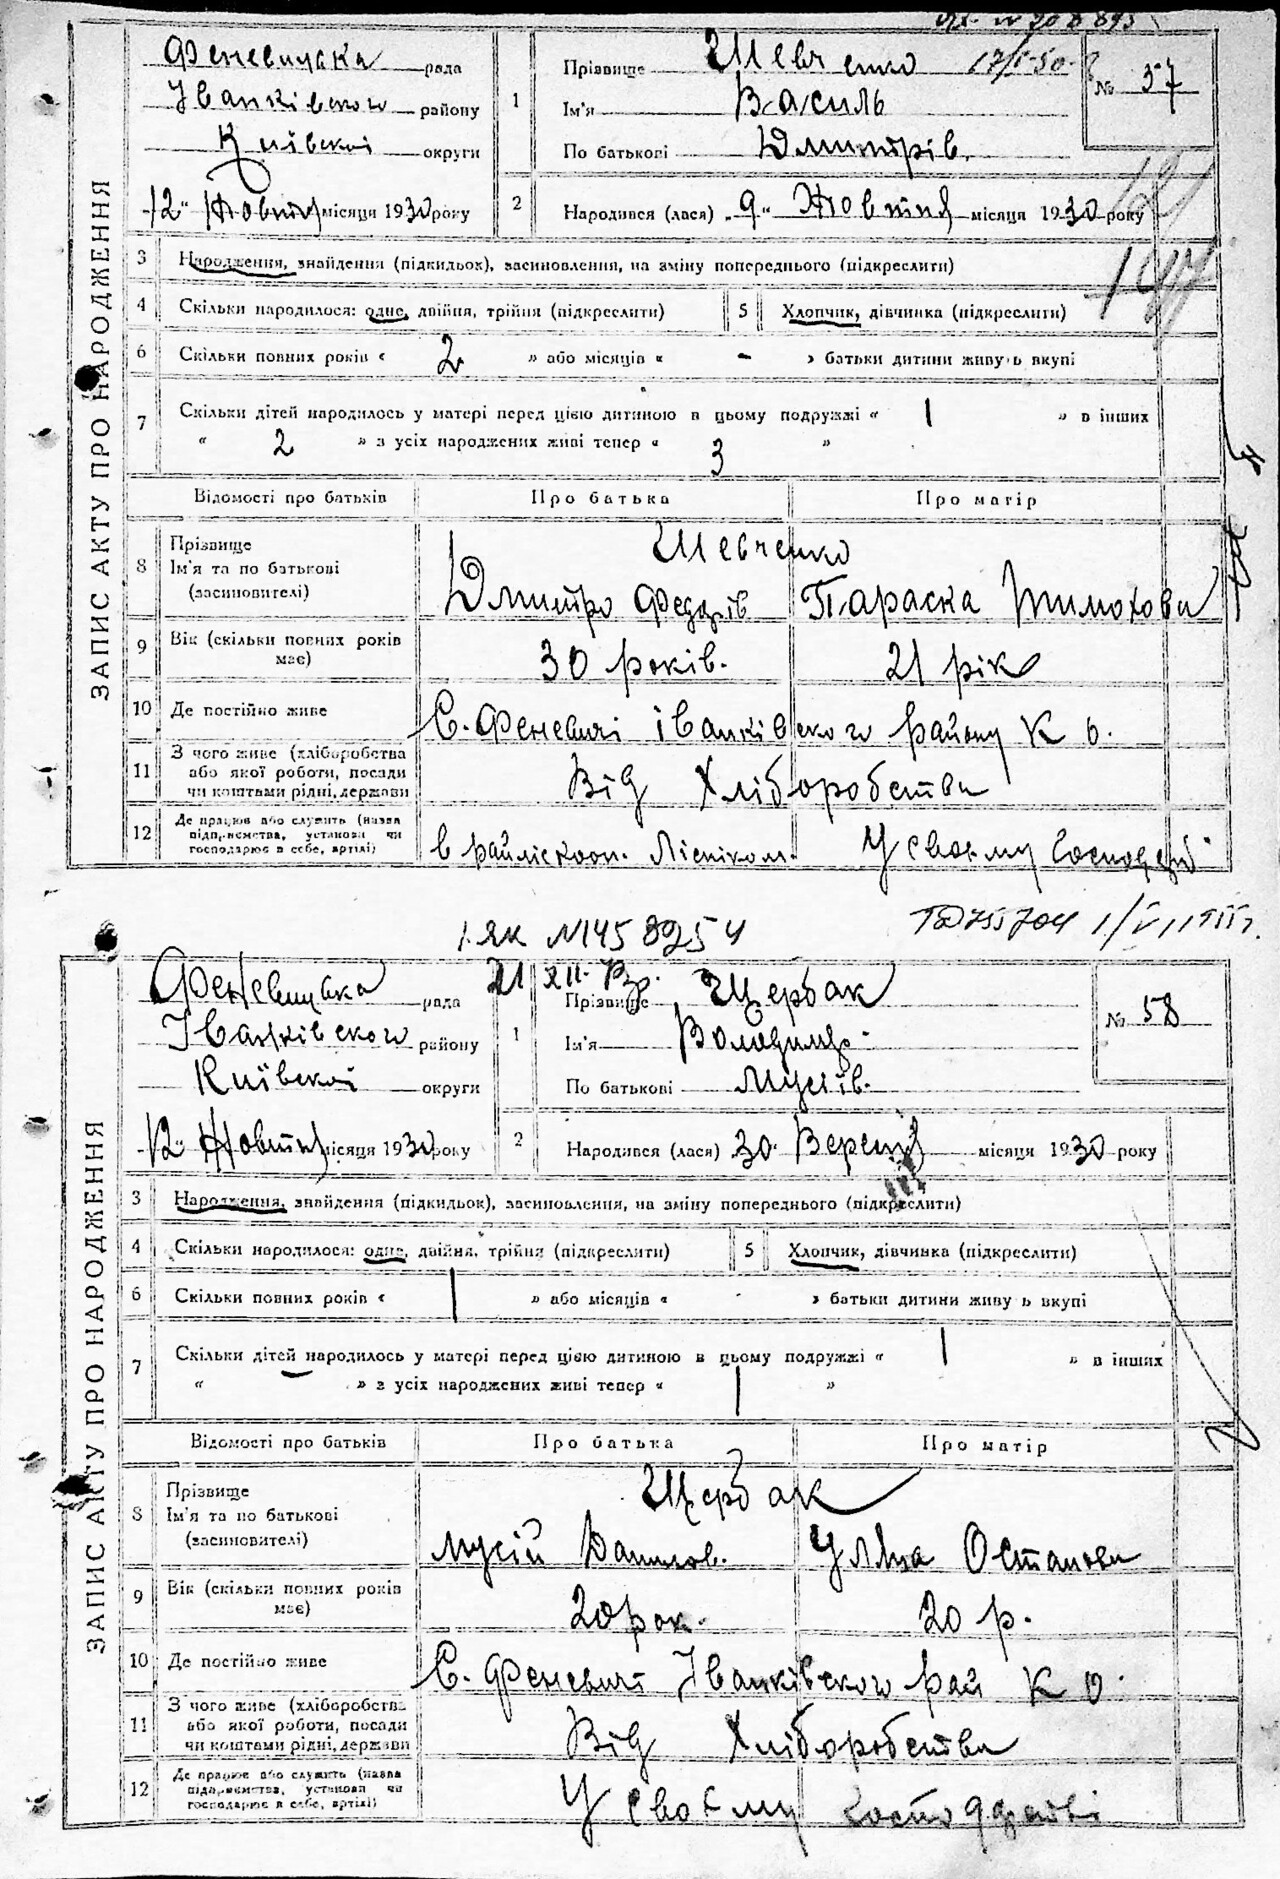 ЗАПИС АКТУ ПРО НАРОДЖЕННЯ
Феневицька рада
Іванківского району
Київскої округи
"12" Жовтня місяця 1930 року
1 Прізвище Шевченко
Ім'я Василь
По батькові Дмитрів.
№ 57
2 Народився (лася) "9" Жовтня місяця 1930 року
3 Народження, знайдення (підкидьок), засиновлення, на зміну попереднього (підкреслити)
4 Скільки народилося: одне, двійня, трійня (підкреслити) 5 Хлопчик, дівчинка (підкреслити)
6 Скільки повних років « 2 » або місяців « - » батьки дитини живуть вкупі
7 Скільки дітей народилось у матері перед цією дитиною в цьому подружжі « 1 » в інших
« 2 » з усіх народжених живі тепер « 3 »
Відомості про батьків Про батька Про матір
8 Прізвище Ім'я та по батькові (засиновителі) Шевченко
Дмитро Федорів Параска Тимохова
9 Вік (скільки повних років має) 30 років. 21 рік
10 Де постійно живе С. Феневичі Іванківского району К О.
11 З чого живе (хліборобства або якої роботи, посади чи коштами рідні, держави Від Хліборобства
12 Де працює або служить (назва підприємства, установи чи господарює в себе, артілі) в райліскооп. У своєму господар
1/VI
ЯК №145 8254
21 XII.
ЗАПИС АКТУ ПРО НАРОДЖЕННЯ
Феневицька рада
Іванківского району
Київскої округи
"12" Жовтня місяця 1930 року
1 Прізвище Щербак
Ім'я Володимир
По батькові Мусіїв.
№ 58
2 Народився (лася) 30 Вересня місяця 1930 року
3 Народження, знайдення (підкидьок), засиновлення, на зміну попереднього (підкреслити)
4 Скільки народилося: одне, двійня, трійня (підкреслити) 5 Хлопчик, дівчинка (підкреслити)
6 Скільки повних років « 1 » або місяців « - » батьки дитини живуть вкупі
7 Скільки дітей народилось у матері перед цією дитиною в цьому подружжі « 1 » в інших
« - » з усіх народжених живі тепер « 1 »
Відомості про батьків Про батька Про матір
8 Прізвище Ім'я та по батькові (засиновителі) Щербак
Мусій Данилов. Уляна Остапова
9 Вік (скільки повних років має) 20 рок. 20 р.
10 Де постійно живе С. Феневичі Іванківского рай К О.
11 З чого живе (хліборобства або якої роботи, посади чи коштами рідні, держави Від Хліборобства
12 Де працює або служить (назва підприємства, установи чи господарює в себе, артілі) У своєму господарстві